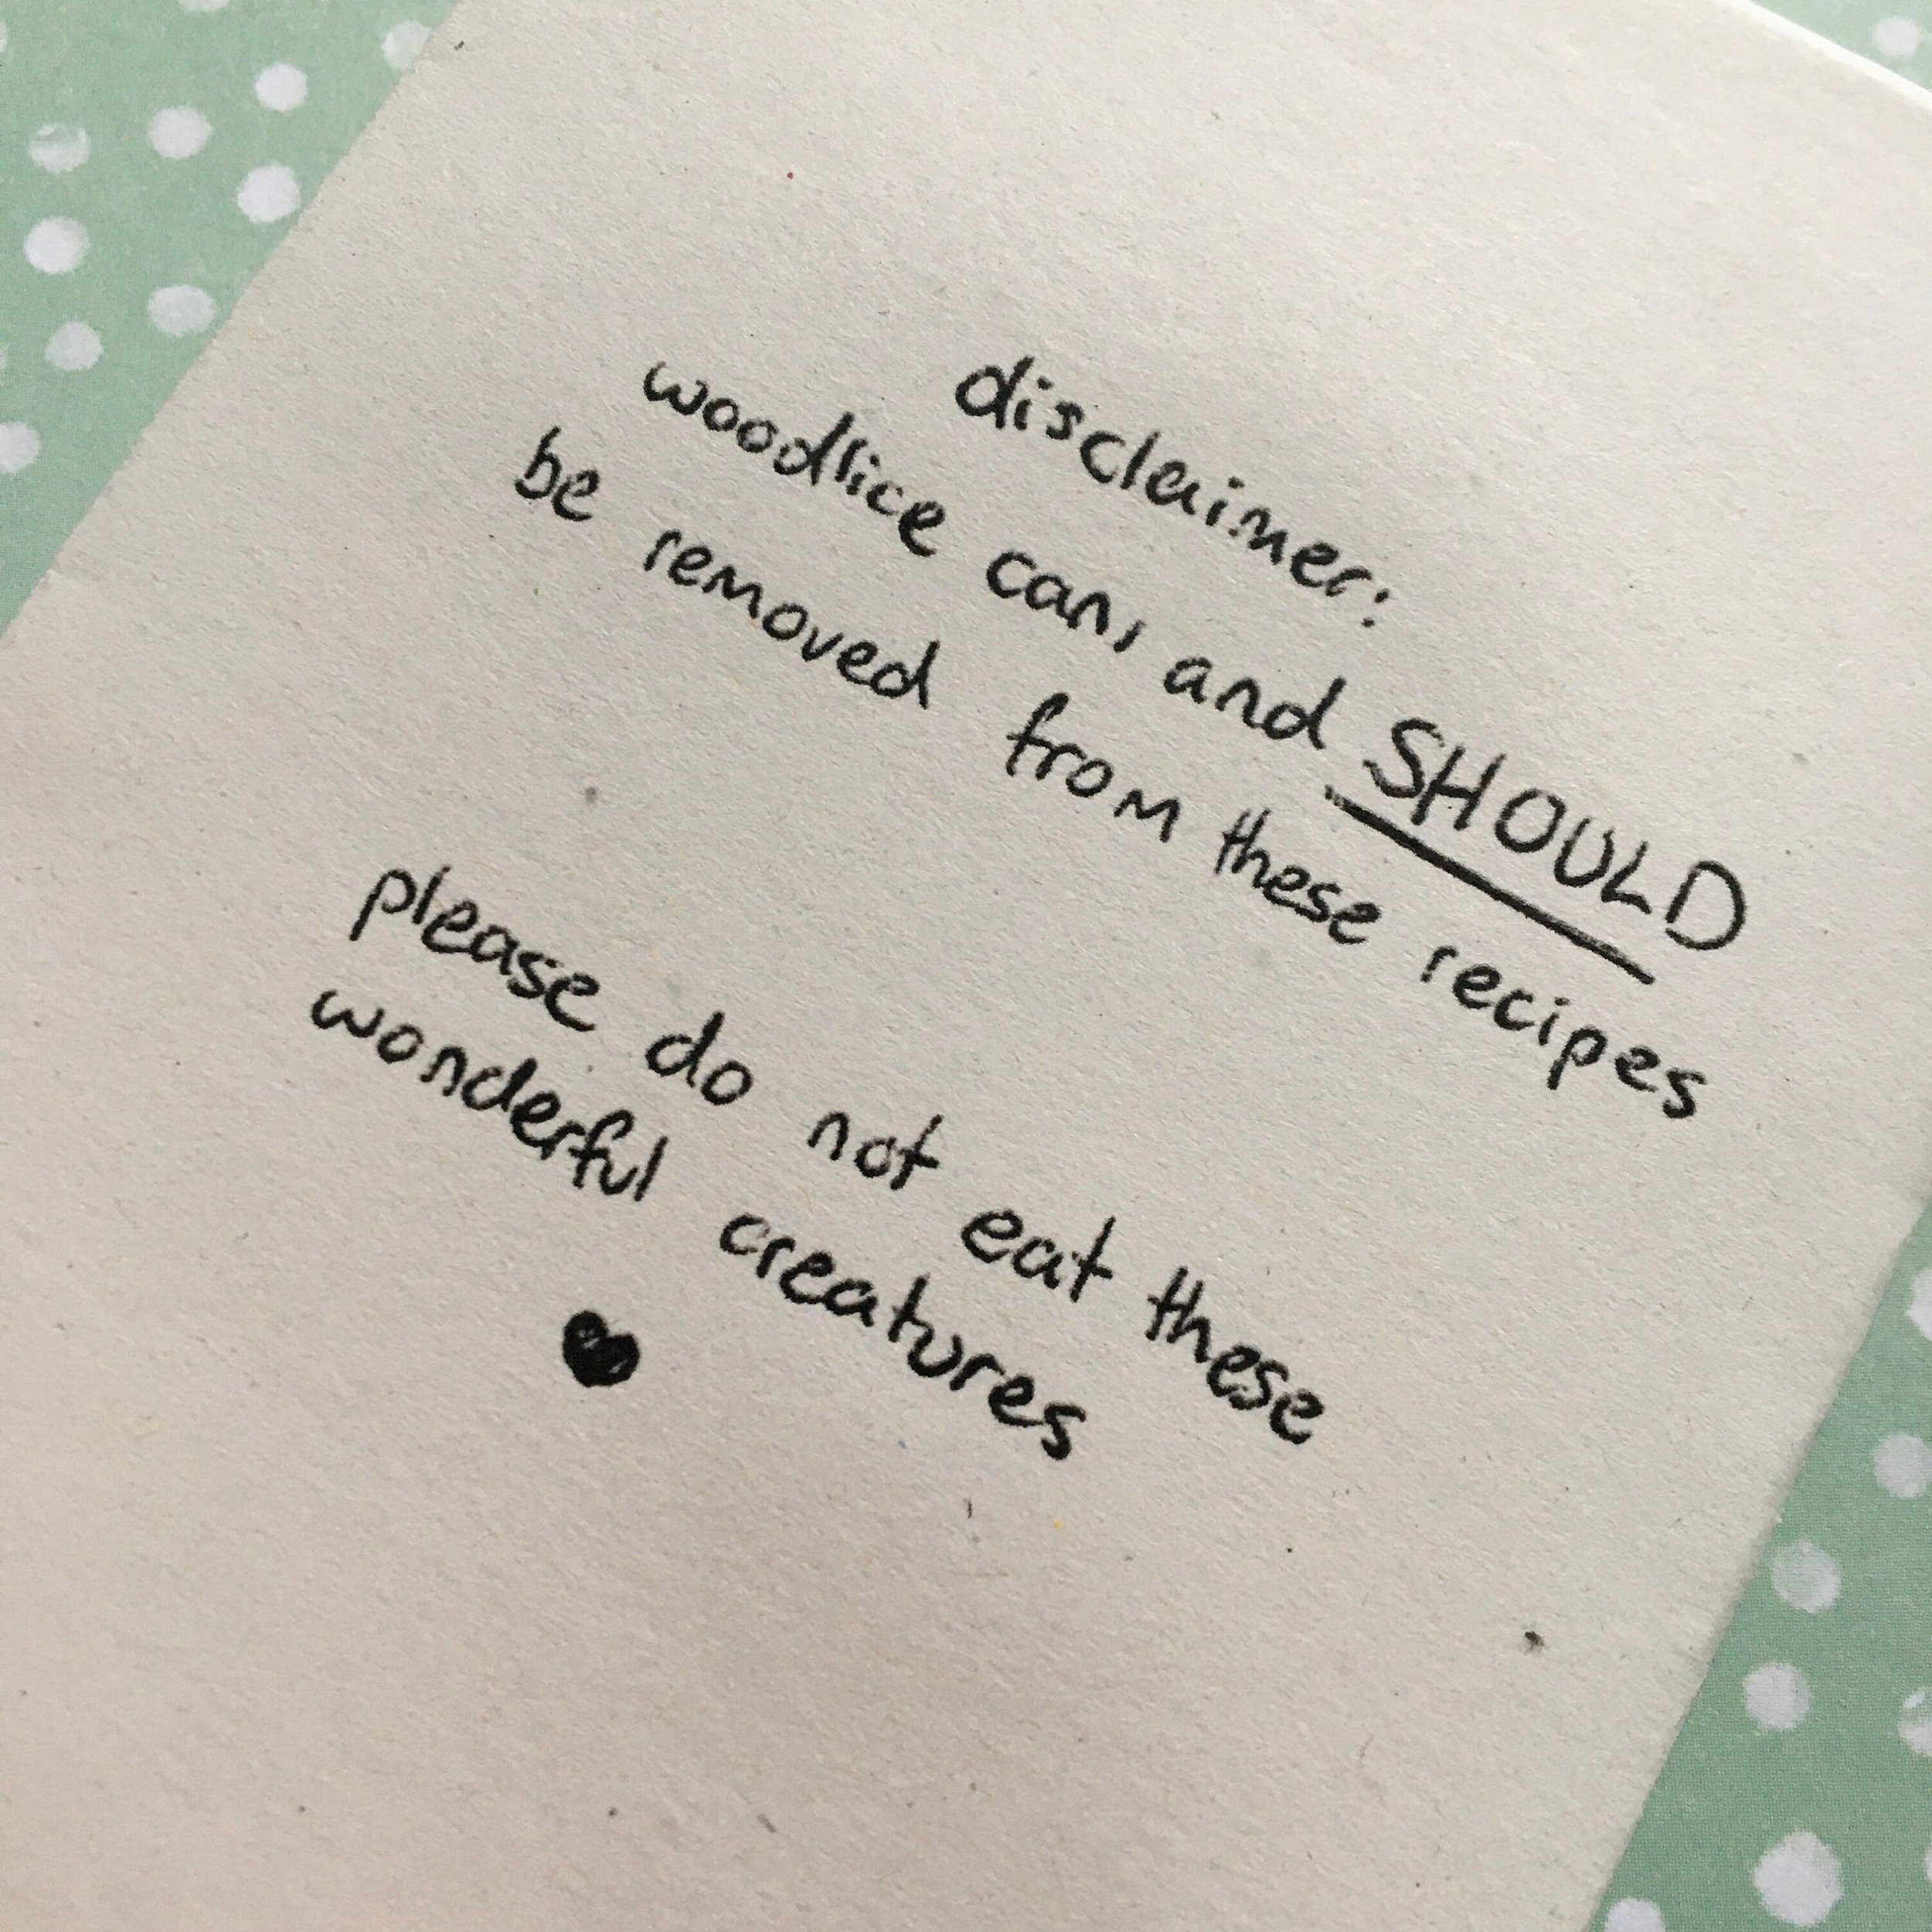 disclaimer:
woodlice can, and SHOULD
be removed from these recipes
please do not eat these
wonderful creatures